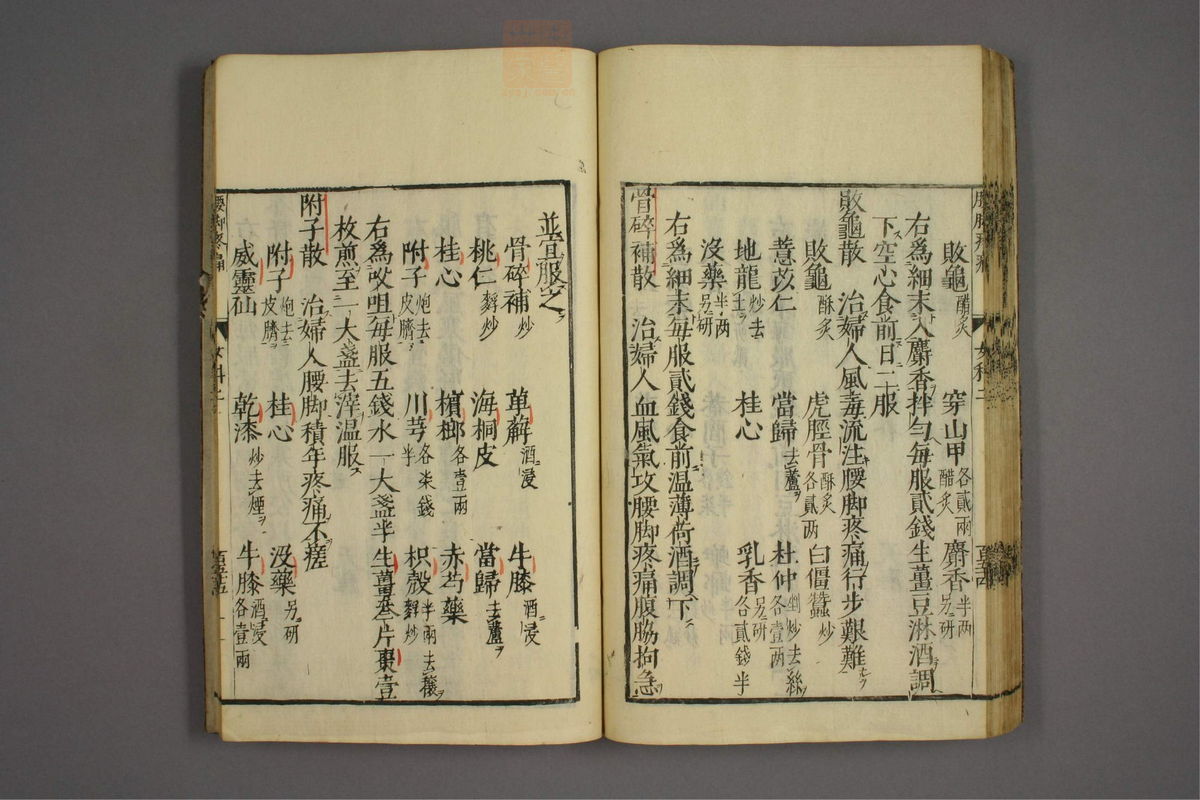 敗龜醋炙 穿山甲各貳兩醋炙 麝香半两另研
右爲細末入麝香拌勻每服貳錢生薑豆淋酒調
下空心食前日二服
敗龜散 治婦人風毒流注腰脚疼痛行步艱難
敗龜酥炙 虎脛骨酥炙各貳两 白僵蠶炒
薏苡仁 當歸去蘆 杜仲炒去絲各壹两
地龍炒去土 桂心 乳香另研各貳錢半
沒藥半两另研
右爲細末每服貳錢食前温薄荷酒調下
骨碎補散 治婦人血風氣攻腰脚疼痛腹脇拘急
並宜服之
骨碎補炒 萆薢酒浸 牛膝酒浸
桃仁麩炒 海桐皮 當歸去蘆
桂心 檳榔各壹兩 赤芍藥
附子炮去皮臍 川芎各柒錢半 枳殼半兩去穰麩炒
右爲㕮咀每服五錢水一大盞半生薑叁片棗壹
枚煎至一大盞去滓温服
附子散 治婦人腰脚積年疼痛不瘥
附子炮去皮臍 桂心 沒藥另研
威靈仙 乾漆炒去煙 牛膝酒浸各壹兩
女科二
女科二